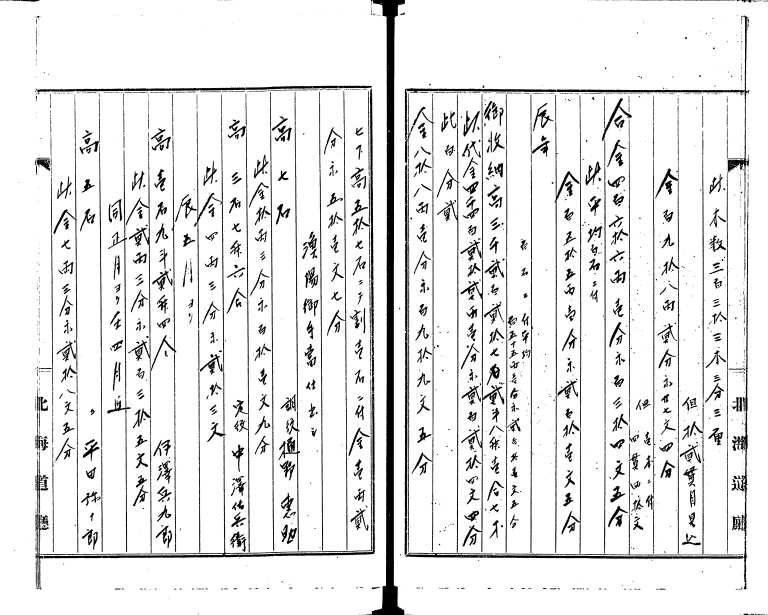 此木数三百三拾三本三分三重
但拾貳貫目以上
金百九拾八両貳分永廿七文四分
但壱本ニ付
四貫四拾文
合金四百六拾六両壱分永百三拾四文五分
此平均百石ニ付
金百五拾五両壱分永貳百拾壱文五分
辰年
御收納高三千貳百貳拾七石貳斗八升壱合七才
此代金四千四百貳拾貳両壱分永貳百貳拾四文四分
此百分貳
金八拾八両壱分永百九拾九文五分
七下高五拾七石ニテ割壱石ニ付金壱両貳
分永五拾壱文七分
漁陽御手當仕出之
高七石
調役
此金拾両三分永百拾壱文九分
高三石七升六合
定役中澤佐兵衛
此金四両三分永貳拾三文
辰五月ヨリ
高壱石九斗貳升四合
伊澤兵九郎
此金貳両三分永貳百三拾五文五分
同正月ヨリ壬四月迄
高五石
平田弥十郎
此金七両三分永貳拾八文五分
北海道廳
北海道廳